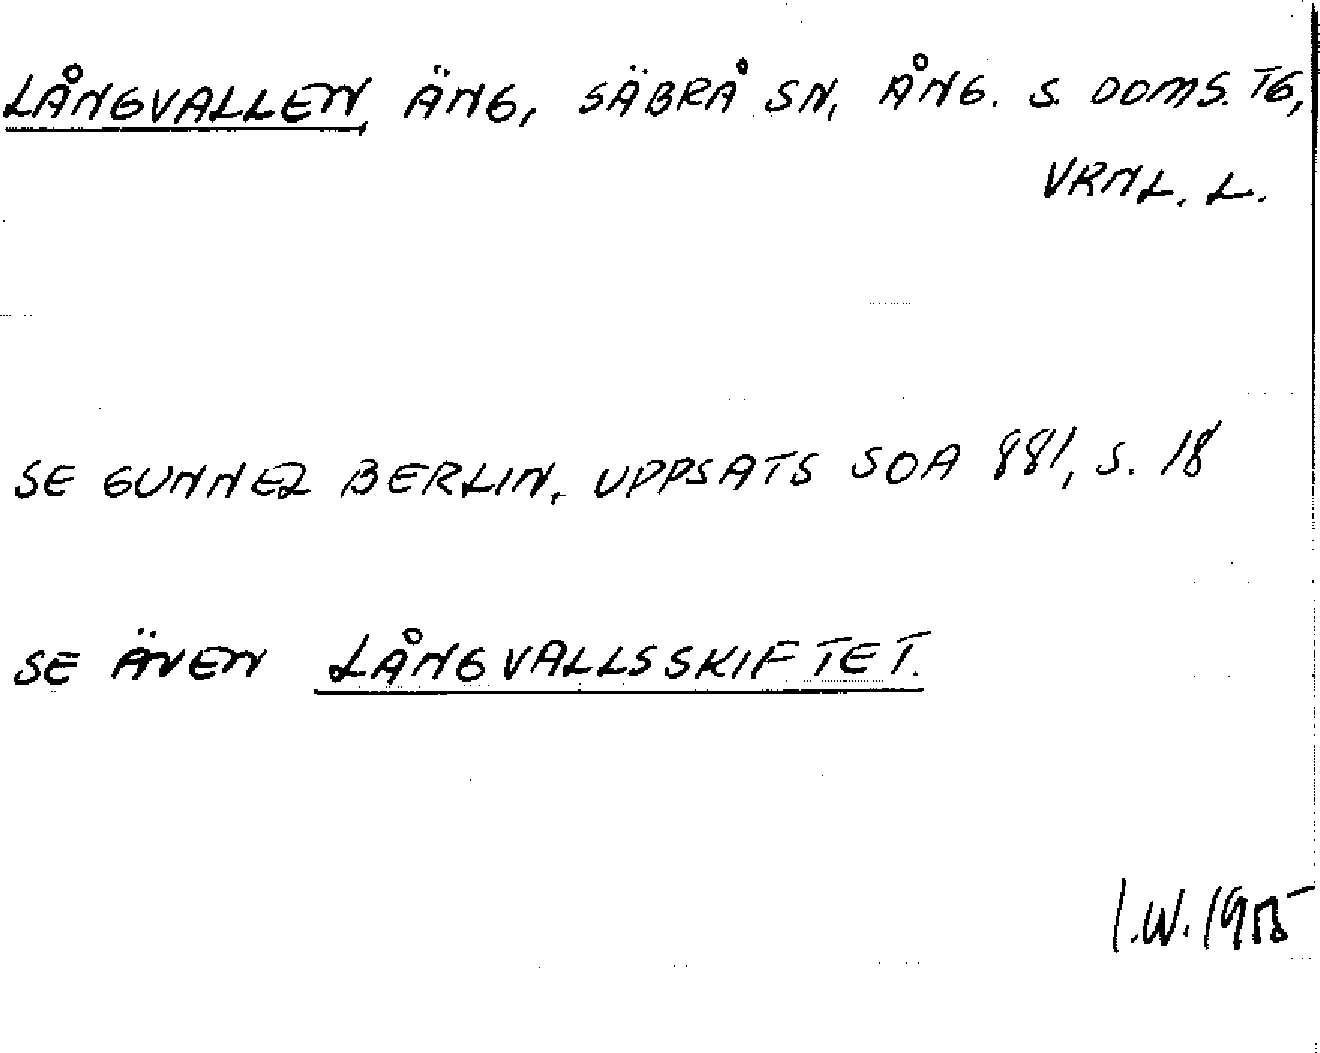 LÅNGVALLEN, ÄNG, SÄBRÅ SN, ÅNG. S. DOMS. TG,
VRNL. L.
SE GUNNEL BERLIN, UPPSATS SOA 881, S. 18
SE ÄVEN LÅNGVALLSSKIFTET.
I.W.